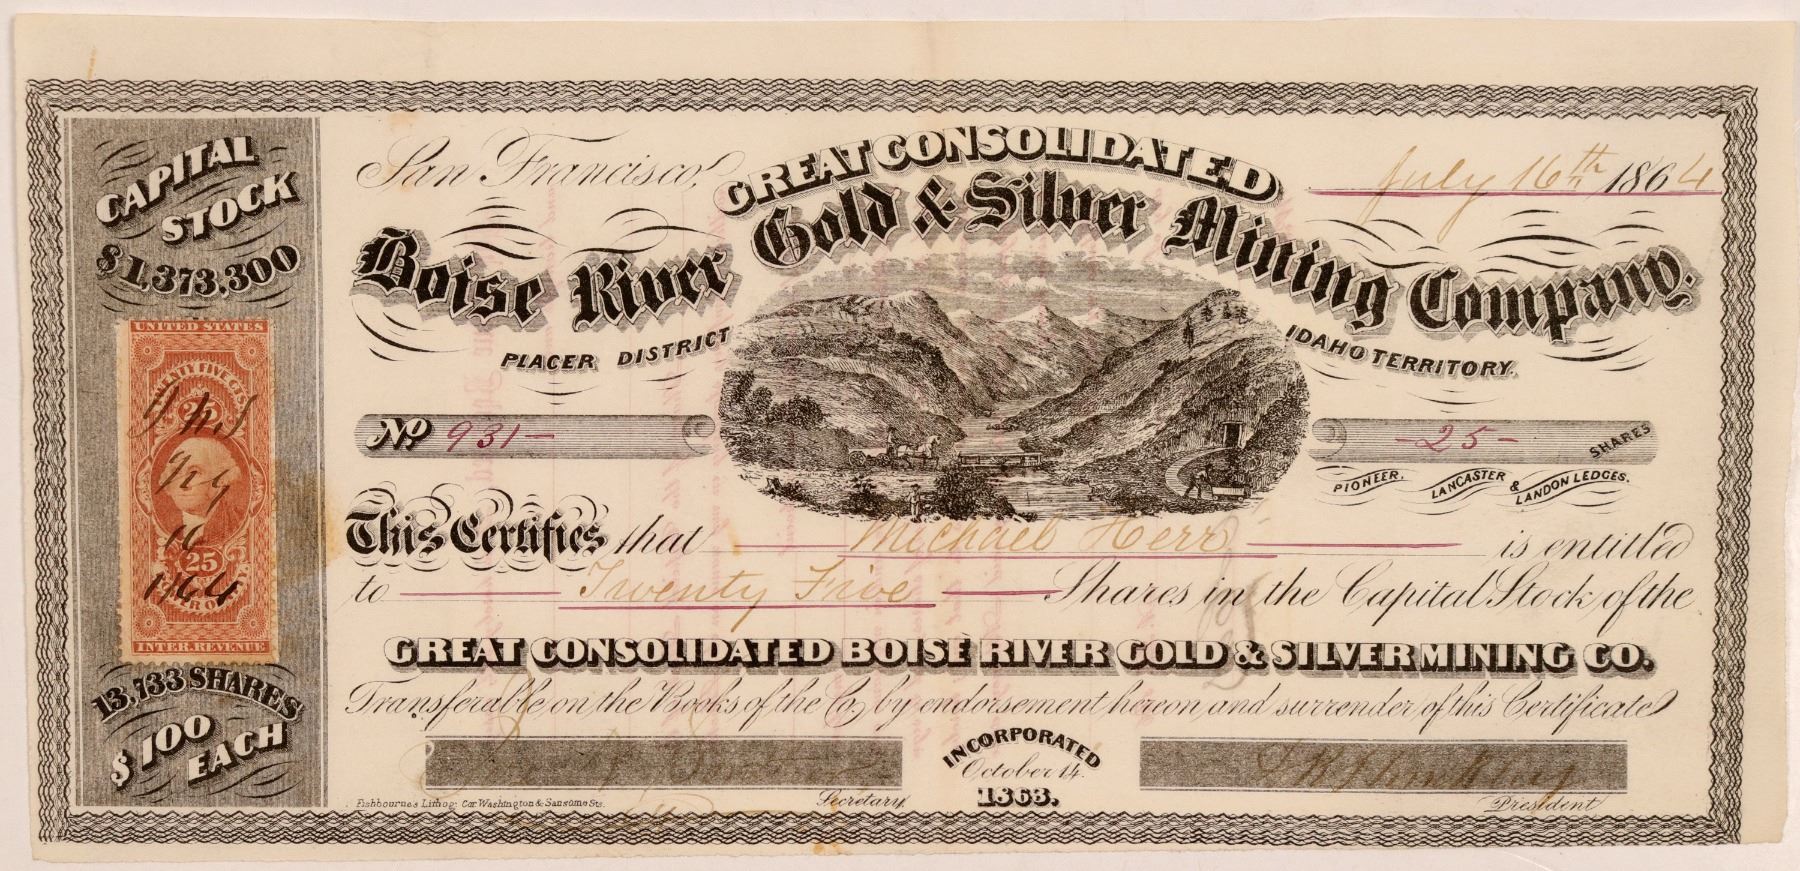 CAPITAL
STOCK
$1,373,300
UNITED STATES
TWENTY FIVE CTS.
25
July
16
25
1864
INTER. REVENUE
13,733 SHARES
$100
EACH
San Francisco, July 16th 1864
GREAT CONSOLIDATED
Boise River Gold & Silver Mining Company.
PLACER DISTRICT IDAHO TERRITORY.
No 931- -25- SHARES
PIONEER, LANCASTER & LANDON LEDGES.
This Certifies that Michael Herr is entitled
to Twenty Five Shares in the Capital Stock of the
GREAT CONSOLIDATED BOISE RIVER GOLD & SILVER MINING CO.
Transferable on the Books of the Co, by endorsement hereon and surrender of this Certificate
INCORPORATED
October 14.
1863.
Fishbourne's Lithog: Cor Washington & Sansome Sts.
Secretary.
President